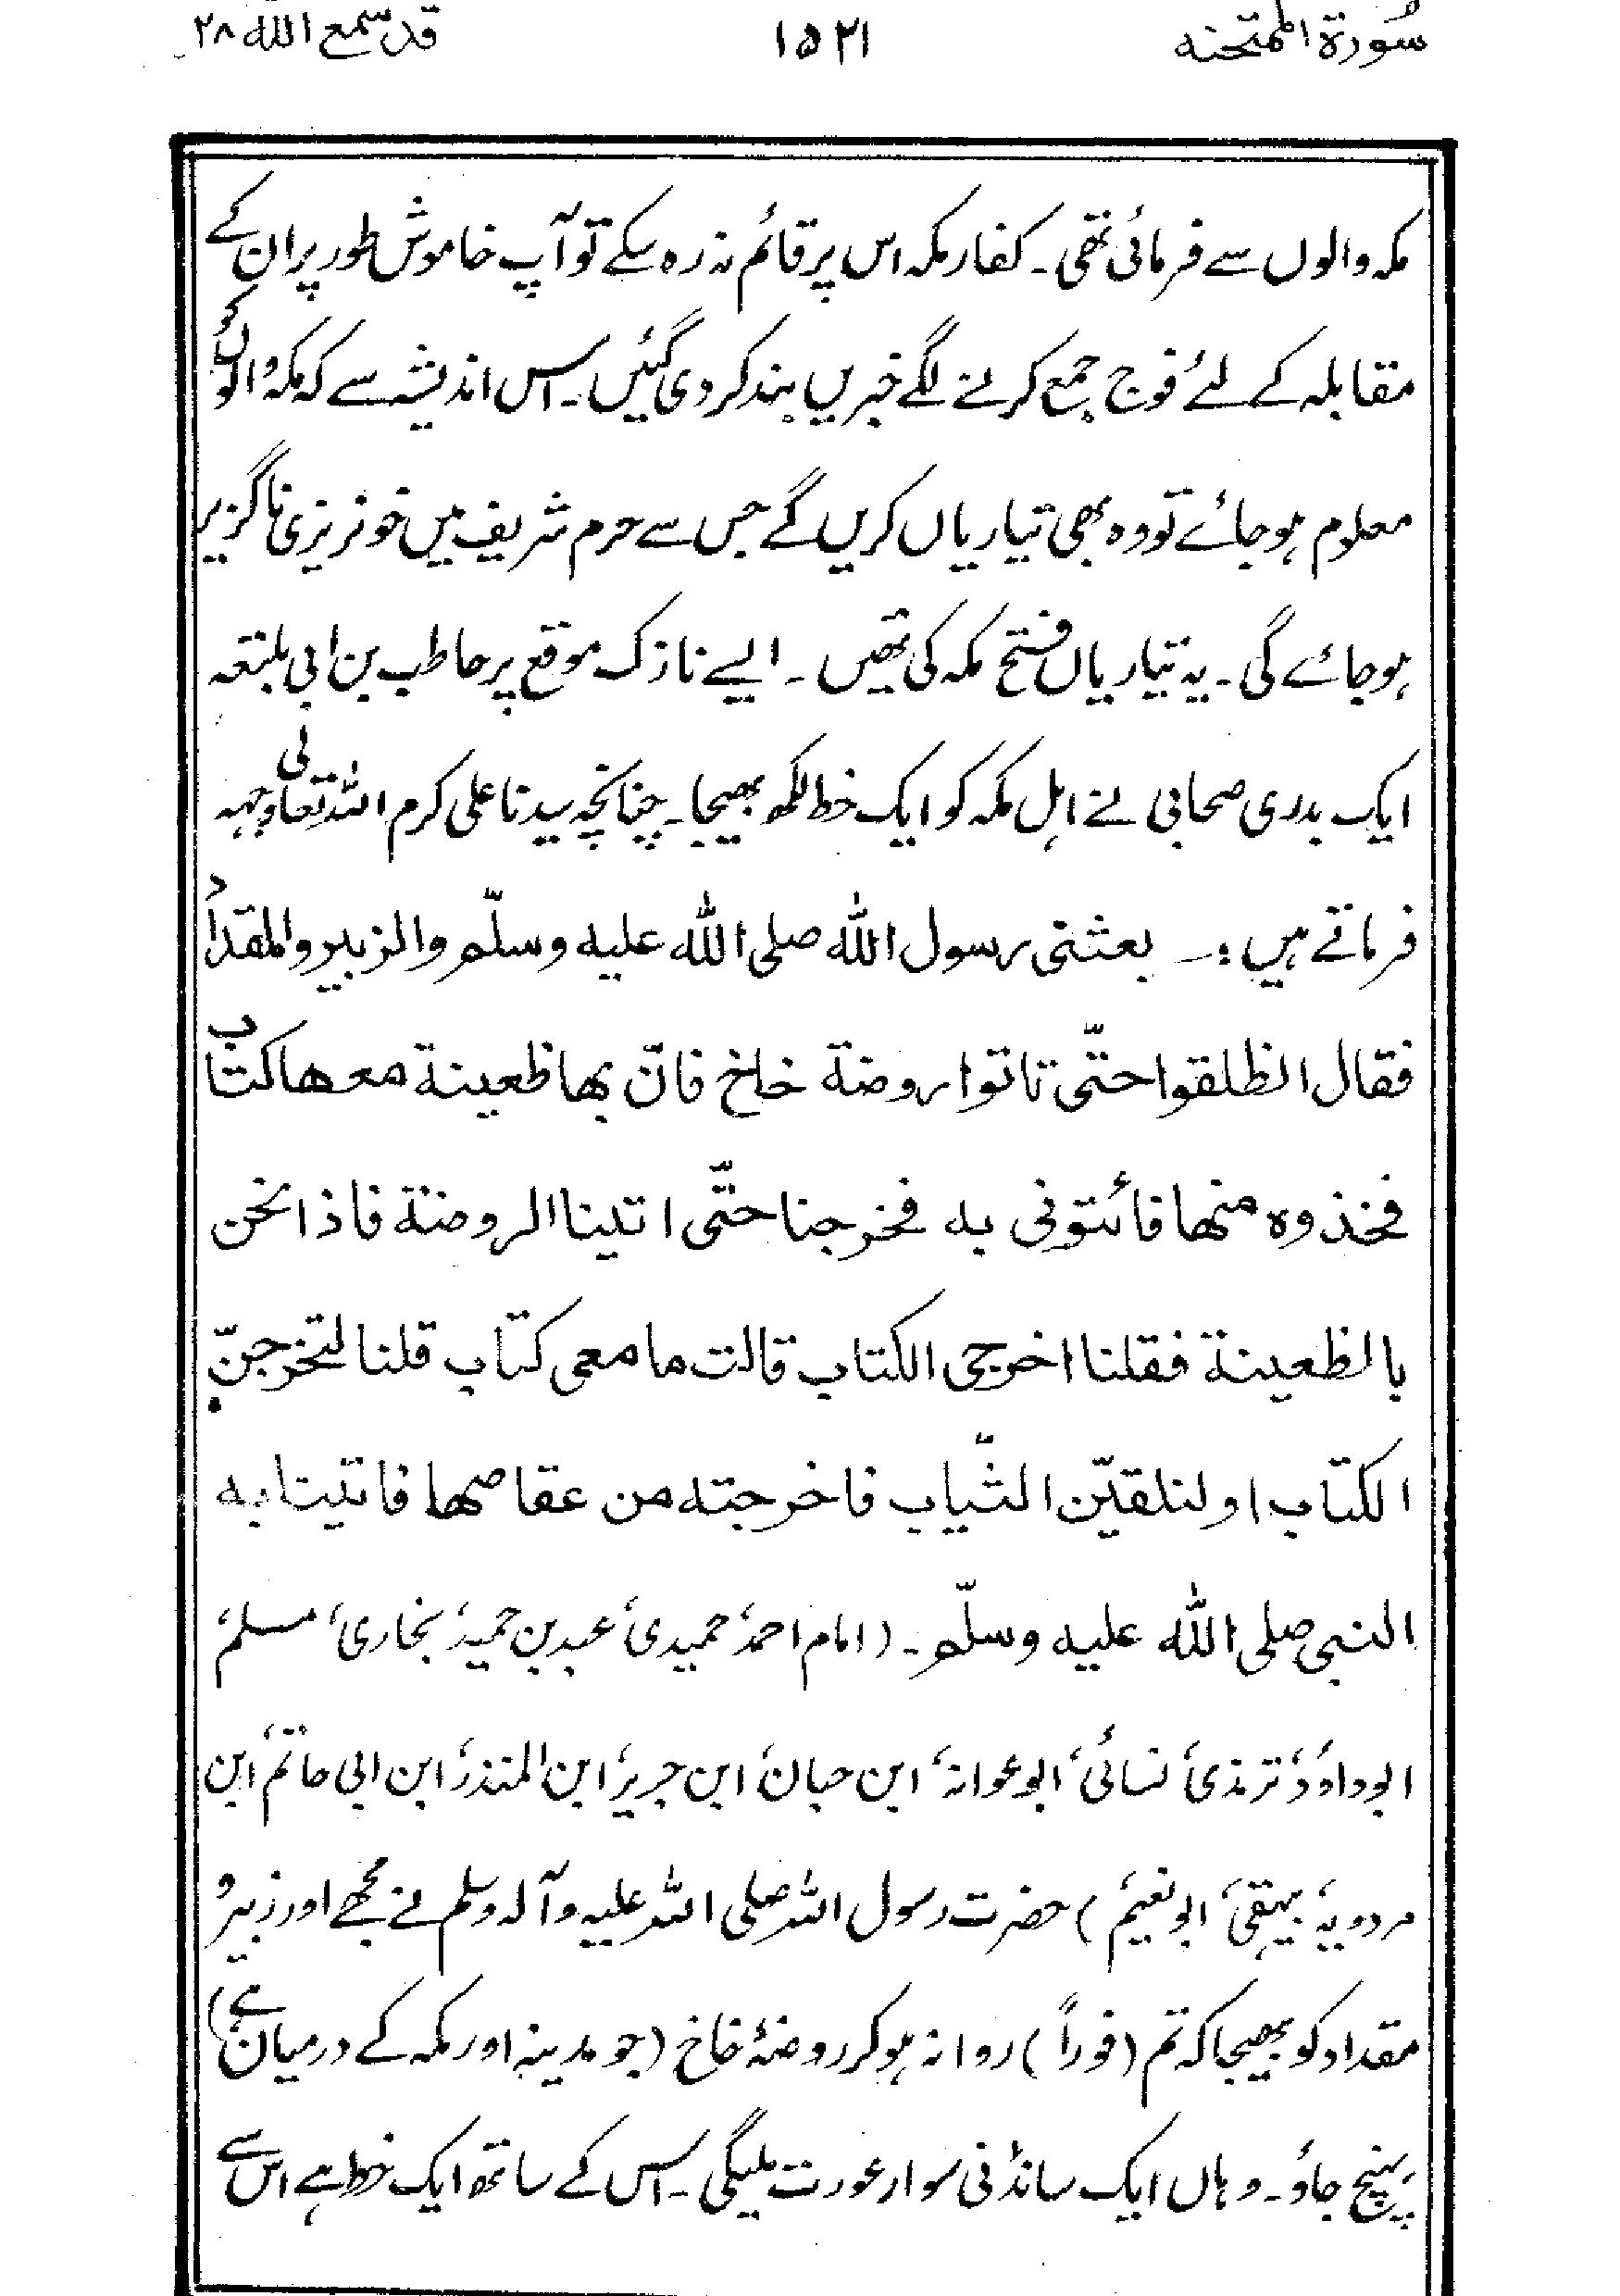 سُورة الممتحنه ١٥٢١ قد سمع الله ٢٨
مکہ والوں سے فرمائی تھی۔ کفار مکہ اس پر قائم نہ رہ سکے تو آپ خاموش طور پر ان کے
مقابلہ کے لئے فوج جمع کرنے لگے خبریں بند کر دی گئیں۔ اس اندیشہ سے کہ مکہ والوں کو
معلوم ہو جائے تو وہ بھی تیاریاں کریں گے جس سے حرم شریف میں خونریزی ناگزیر
ہو جائے گی۔ یہ تیاریاں فتح مکہ کی تھیں۔ ایسے نازک موقع پر حاطب بن ابی بلتعہ
ایک بدری صحابی نے اہل مکہ کو ایک خط لکھ بھیجا۔ چنانچہ سیدنا علی کرم اللہ تعالی وجہہ
فرماتے ہیں :۔ بعثنی رسول الله صلی الله علیه وسلّم والزبیر والمقداد
فقال انطلقوا حتّی تاتوا روضة خاخ فانّ بها ظعینة معها کتاب
فخذوه منها فائتونی به فخرجنا حتّی اتینا الروضة فاذا نحن
بالظعینة فقلنا اخرجی الکتاب قالت ما معی کتاب قلنا لتخرجنّ
الکتاب او لنلقینّ الثّیاب فاخرجته من عقاصها فاتینا به
النبی صلی الله علیه وسلّم۔ (امام احمد، حمیدی، عبد بن حمید، بخاری، مسلم،
ابوداؤد، ترمذی، نسائی، ابو عوانہ، ابن حبان، ابن جریر، ابن المنذر، ابن ابی حاتم، ابن
مردویہ، بیہقی، ابو نعیم) حضرت رسول اللہ صلی اللہ علیہ وآلہ وسلم نے مجھے اور زبیر و
مقداد کو بھیجا کہ تم (فوراً) روانہ ہو کر روضۂ خاخ (جو مدینہ اور مکہ کے درمیان ہے)
پہنچ جاؤ۔ وہاں ایک سانڈنی سوار عورت ملیگی۔ اس کے ساتھ ایک خط ہے اس سے